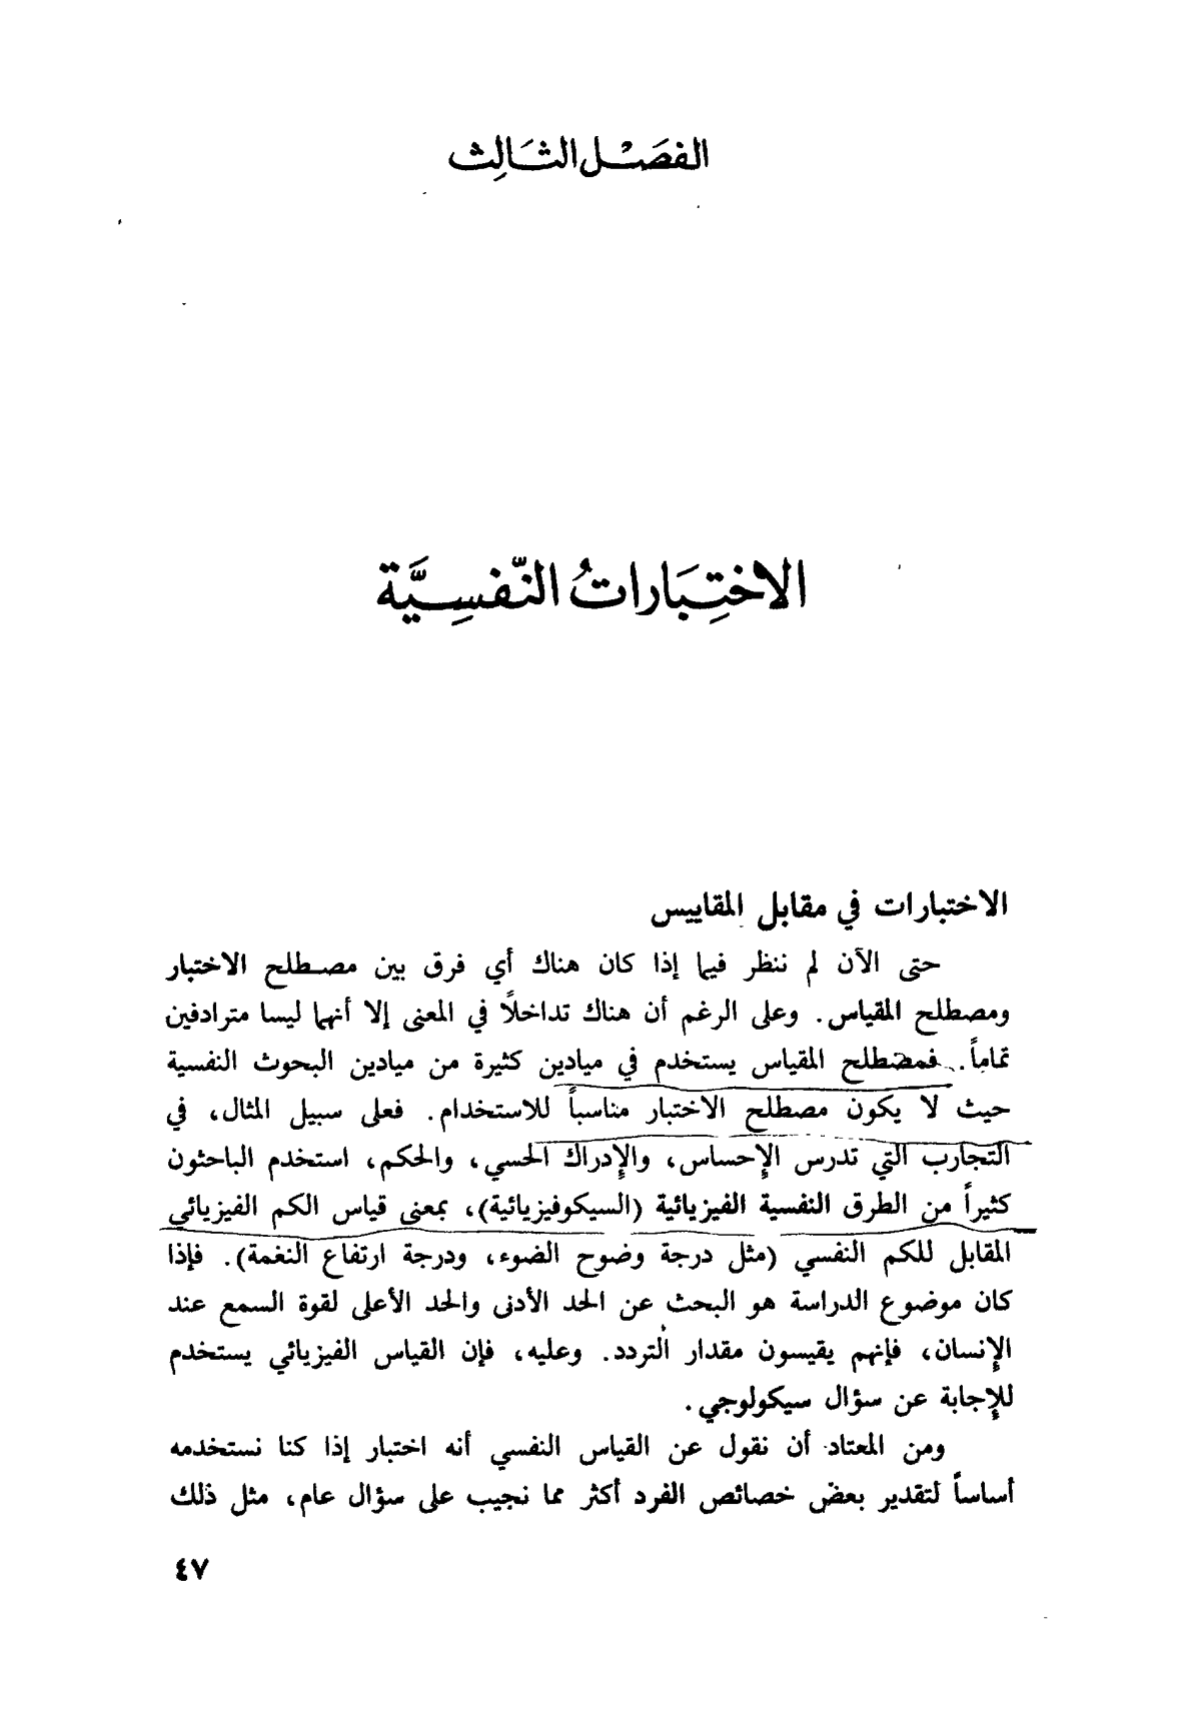 الفصَـْـل الثـَـالِث
الاختِـبَارَاتُ النّفسِـيَّة
الاختبارات في مقابل المقاييس
حتى الآن لم ننظر فيما إذا كان هناك أي فرق بين مصطلح الاختبار
ومصطلح المقياس. وعلى الرغم أن هناك تداخلًا في المعنى إلا أنهما ليسا مترادفين
تماماً. فمصطلح المقياس يستخدم في ميادين كثيرة من ميادين البحوث النفسية
حيث لا يكون مصطلح الاختبار مناسباً للاستخدام. فعلى سبيل المثال، في
التجارب التي تدرس الإحساس، والإدراك الحسي، والحكم، استخدم الباحثون
كثيراً من الطرق النفسية الفيزيائية (السيكوفيزيائية)، بمعنى قياس الكم الفيزيائي
المقابل للكم النفسي (مثل درجة وضوح الضوء، ودرجة ارتفاع النغمة). فإذا
كان موضوع الدراسة هو البحث عن الحد الأدنى والحد الأعلى لقوة السمع عند
الإنسان، فإنهم يقيسون مقدار التردد. وعليه، فإن القياس الفيزيائي يستخدم
للإجابة عن سؤال سيكولوجي.
ومن المعتاد أن نقول عن القياس النفسي أنه اختبار إذا كنا نستخدمه
أساساً لتقدير بعض خصائص الفرد أكثر مما نجيب على سؤال عام، مثل ذلك
٤٧